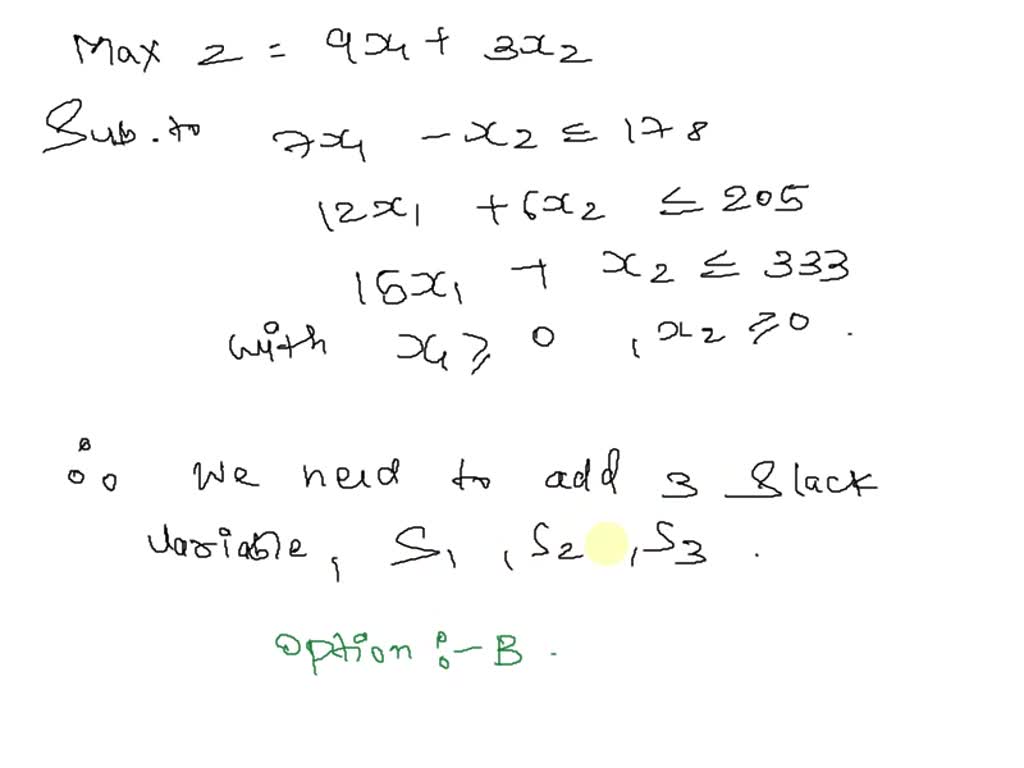 Max Z = 9x₁ + 3x₂
Sub. to 7x₁ - x₂ ≤ 178
12x₁ + 6x₂ ≤ 205
15x₁ + x₂ ≤ 333
with x₁ ≥ 0 , x₂ ≥ 0 .
∴ We need to add 3 Slack
Variable, S₁ , S₂ , S₃ .
option :- B .